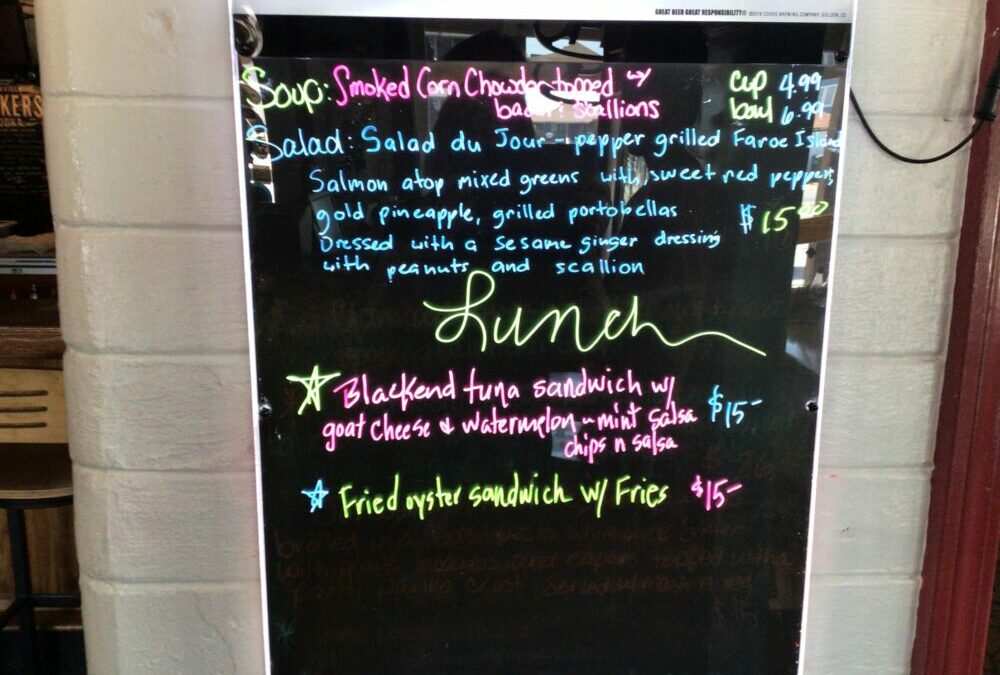 GREAT BEER GREAT RESPONSIBILITY® ©2016 COORS BREWING COMPANY, GOLDEN, CO
KERS
Soup: Smoked Corn Chowder topped w/ cup 4.99
bacon scallions bowl 6.99
Salad: Salad du Jour - pepper grilled Faroe Island
Salmon atop mixed greens with sweet red peppers,
gold pineapple, grilled portobellas $15.00
Dressed with a sesame ginger dressing
with peanuts and scallion
Lunch
Blackend tuna sandwich w/
goat cheese & watermelon-mint salsa $15-
chips n salsa
Fried oyster sandwich w/ Fries $15-